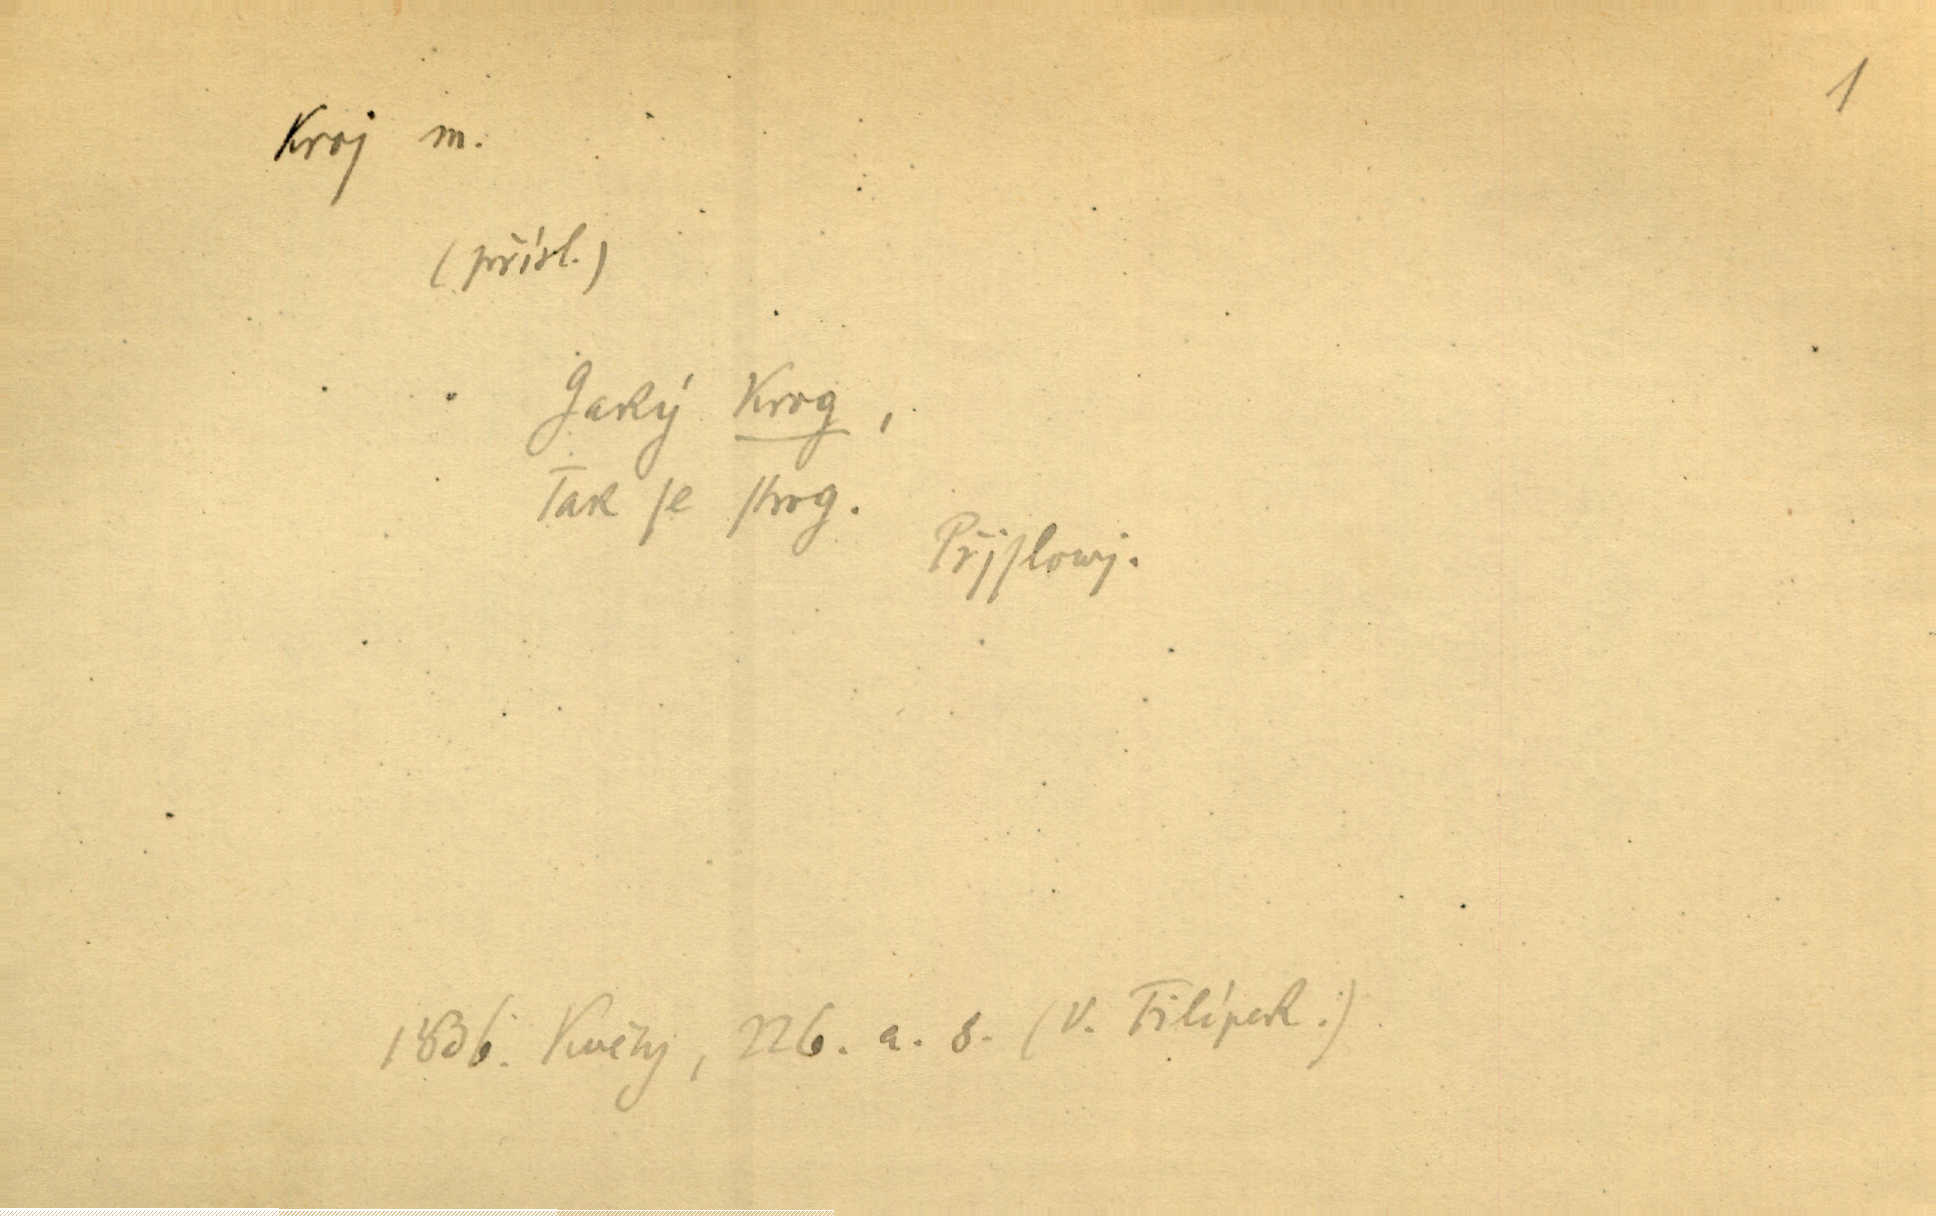 1
Kroj m.
(přísl.)
Gaký Krog,
Tak ſe ſtrog.
Přjſlowj.
1836. Květy, 226. a. s. (V. Filípek.)